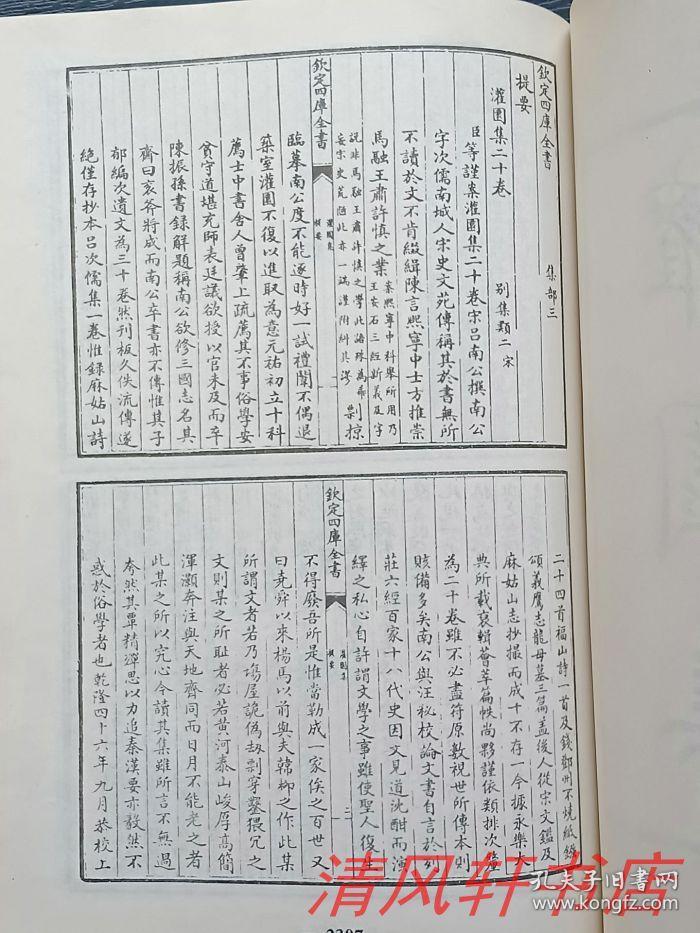 欽定四庫全書 集部三
提要
灌園集二十卷 別集類二宋
臣等謹案灌園集二十卷宋呂南公撰南公
字次儒南城人宋史文苑傳稱其於書無所
不讀於文不肯綴緝陳言熙寧中士方推崇
馬融王肅許慎之業案熙寧中科舉所用乃
王安石三經新義及字
說非馬融王肅許慎之學此語殊為舛
妄宋史荒陋此亦一端謹附糾其謬剽掠
欽定四庫全書
灌園集
提要
一
臨摹南公度不能逐時好一試禮闈不偶退
築室灌園不復以進取為意元祐初立十科
薦士中書舍人曾肇上疏薦其不事俗學安
貧守道堪充師表廷議欲授以官未及而卒
陳振孫書録解題稱南公欲修三國志名其
齋曰袞斧將成而南公卒書亦不傳惟其子
郁編次遺文為三十卷然刊板久佚流傳遂
絕僅存抄本呂次儒集一卷惟録麻姑山詩
二十四首福山詩一首及錢鄧州不燒紙鏹
頌義鷹志龍母墓三篇蓋後人從宋文鑑及
麻姑山志抄撮而成十不存一今據永樂大
典所載裒輯薈萃篇帙尚夥謹依類排次釐
為二十卷雖不必盡符原數視世所傳本則
賅備多矣南公與汪秘校論文書自言於列
莊六經百家十八代史因文見道沈酣而演
繹之私心自許謂文學之事雖使聖人復生
欽定四庫全書
灌園集
提要
二
不得廢吾所是惟當勒成一家俟之百世又
曰堯舜以來楊馬以前與夫韓柳之作此某
所謂文者若乃塲屋詭偽刼剽穿鑿猥冗之
文則某之所耻者必若黃河泰山峻厚高簡
渾灝奔注與天地齊同而日月不能老之者
此某之所以究心今讀其集雖所言不無過
夸然其覃精殫思以力追秦漢要亦毅然不
惑於俗學者也乾隆四十六年九月恭校上
清风轩书店
孔夫子旧书网
www.kongfz.com